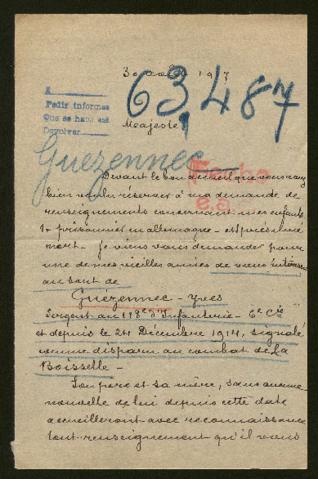 30 1917
63,487
A
Pedir informes
Que se haga
Devolver
Majesté
Guézennec
Devant le bon accueil que vous avez
bien voulu réserver à ma demande de
renseignements concernant mes enfants
prisonnier en Allemagne - et
mort - je viens vous demander pour
une de mes vieilles amies de vous intéresser
au sort de
Guézennec - Yves
Sergent au 118e d'Infanterie - 6e Cie
et depuis le 24 Décembre 1914, signalé
comme disparu au combat de La
Boisselle -
Son père et sa mère, sans aucune
nouvelle de lui depuis cette date
accueilleront avec reconnaissance
tout renseignement qu'il vous